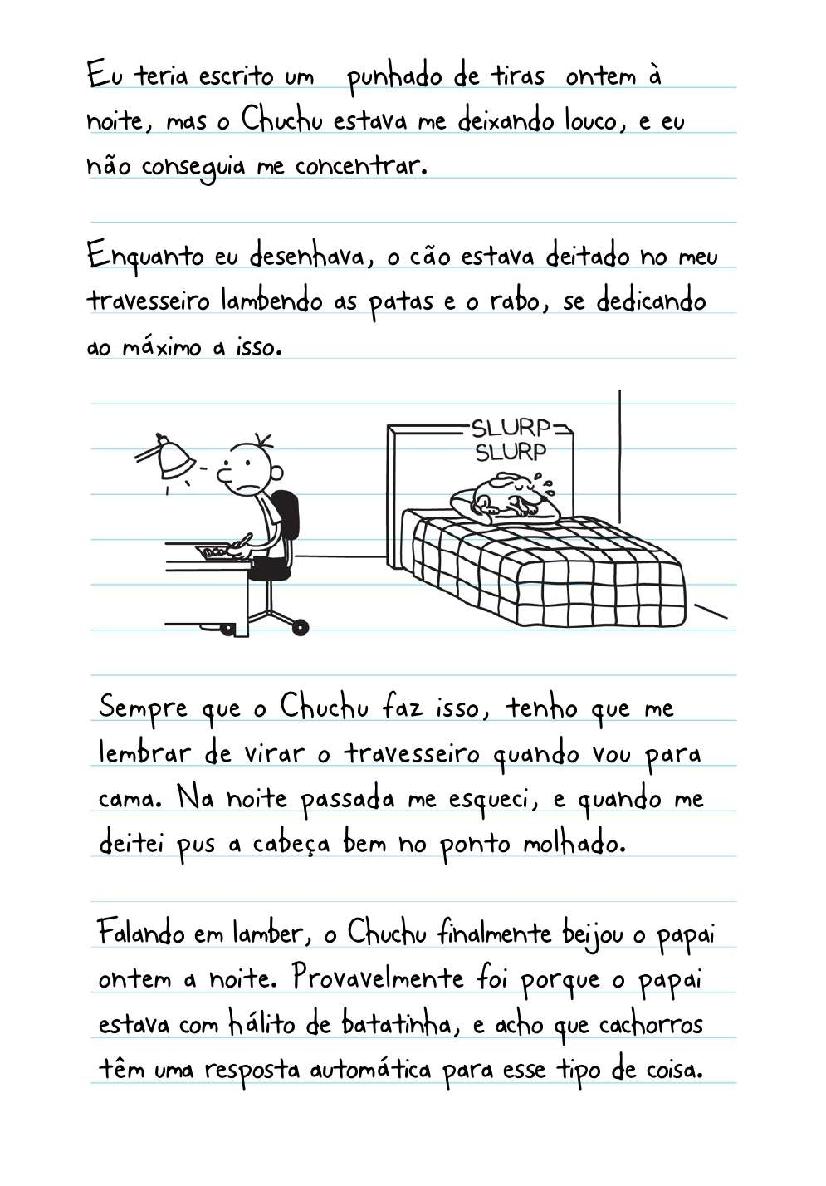 Eu teria escrito um punhado de tiras ontem à
noite, mas o Chuchu estava me deixando louco, e eu
não conseguia me concentrar.
Enquanto eu desenhava, o cão estava deitado no meu
travesseiro lambendo as patas e o rabo, se dedicando
ao máximo a isso.
SLURP
SLURP
Sempre que o Chuchu faz isso, tenho que me
lembrar de virar o travesseiro quando vou para
cama. Na noite passada me esqueci, e quando me
deitei pus a cabeça bem no ponto molhado.
Falando em lamber, o Chuchu finalmente beijou o papai
ontem a noite. Provavelmente foi porque o papai
estava com hálito de batatinha, e acho que cachorros
têm uma resposta automática para esse tipo de coisa.